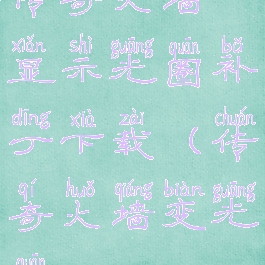 传奇火墙
xiǎn shì guāng quān bǔ
显示光圈补
dīng xià zài chuán
丁下载（传
qí huǒ qiáng biàn guāng
奇火墙变光
quān